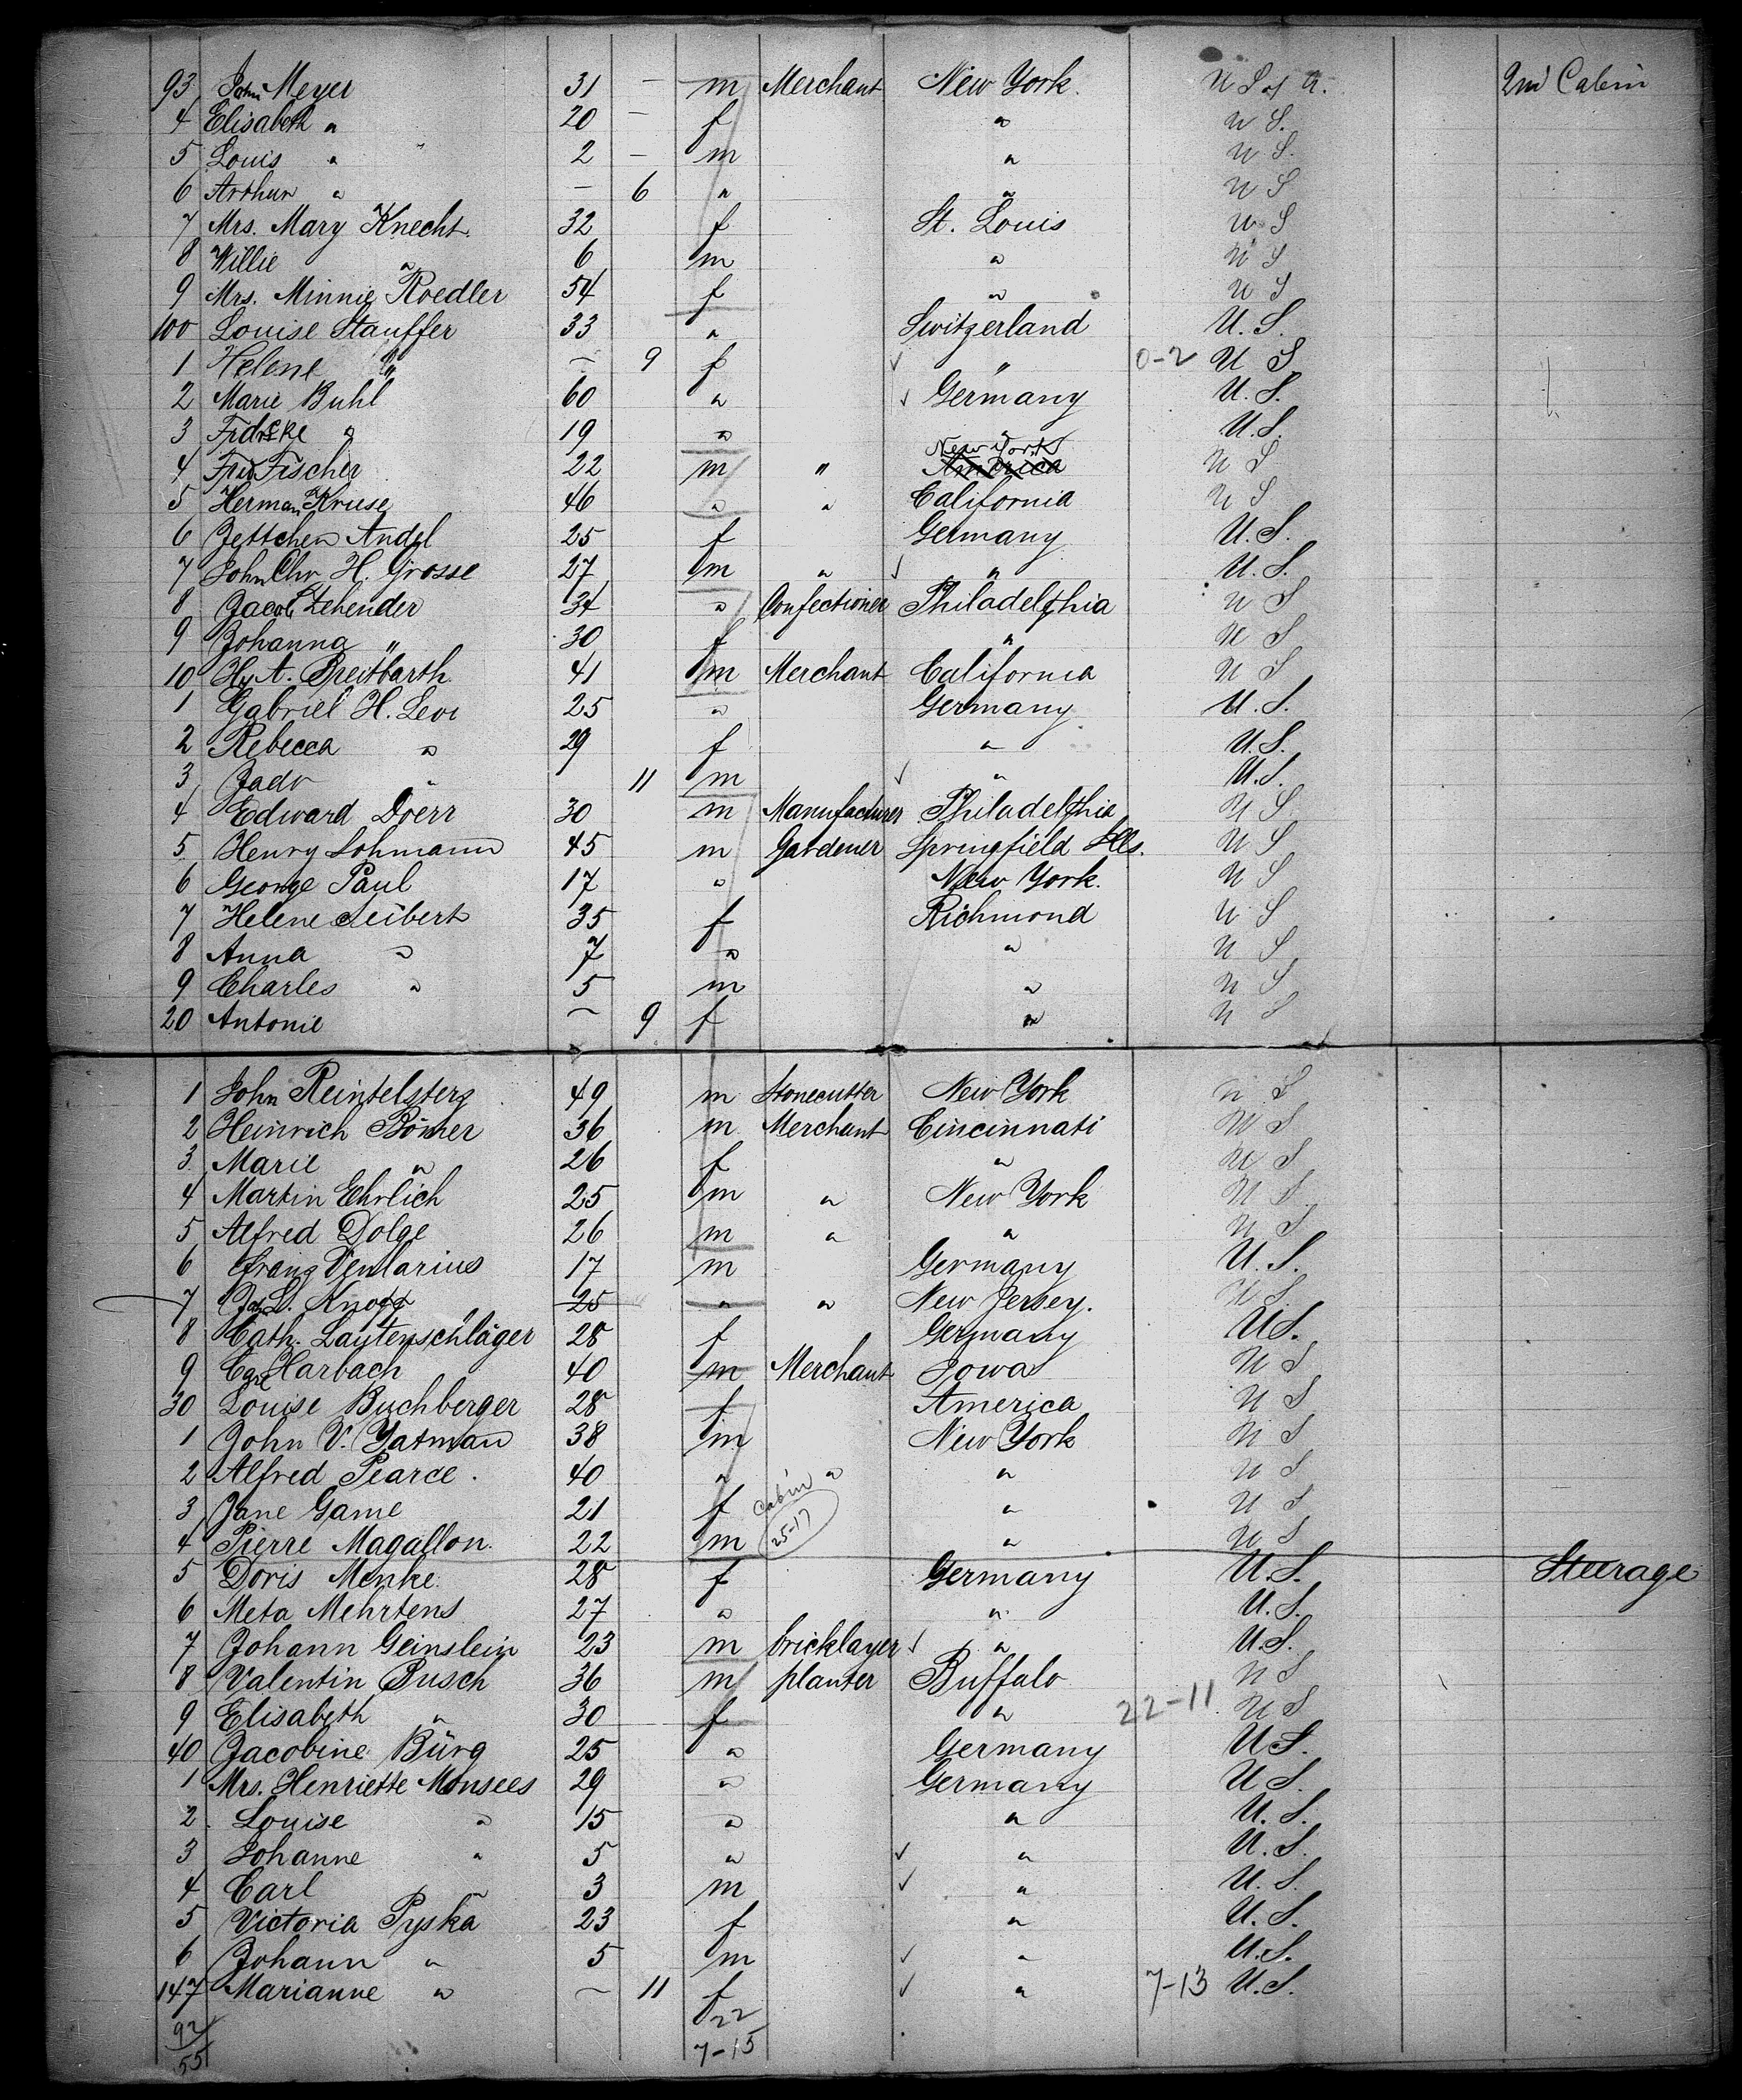 93 John Meyer 31 — m Merchant New York. U S of A. 2nd Cabin
4 Elisabeth " 20 — f " U S.
5 Louis " 2 — m " U S.
6 Arthur " — 6 " " U S
7 Mrs. Mary Knecht. 32 f St. Louis U S
8 Willie " 6 m " U S
9 Mrs. Minnie Roedler 54 f " U S
100 Louise Stauffer 33 " Switzerland U. S.
1 Helene " — 9 f ✓ " 0-2 U S.
2 Marie Buhl 60 " ✓ Germany U. S.
3 " 19 " " U.S.
New York
4 Fischer 22 m " America U S
5 Herman Kruse 46 " " California U S
6 Jettchen Andel 25 f Germany U. S.
7 John Chr. H. Grosse 27 m " ✓ " U. S.
8 Jacob Zehender 34 " Confectioner Philadelphia U S
9 Johanna " 30 f " U S
10 Hy A. Breitbarth 41 m Merchant California U S
1 Gabriel H. Levi 25 " Germany U. S.
2 Rebecca " 29 f " U.S.
3 " 11 m ✓ " U.S.
4 Edward Doerr 30 m Manufacturer Philadelphia U S
5 Henry Lohmann 45 m Gardener Springfield Ills. U S
6 George Paul 17 " New York. U S
7 Helene Seibert 35 f Richmond U S
8 Anna " 7 " " U S
9 Charles " 5 m " U S
20 Antonie — 9 f " U S
1 John 49 m Stonecutter New York U S
2 Heinrich Römer 36 m Merchant Cincinnati U S
3 Marie " 26 f " U S
4 Martin Ehrlich 25 m " New York U S
5 Alfred Dolge 26 m " " U S
6 Franz Ventarius 17 m Germany U. S.
7 L. Knopf 25 " " New Jersey. U S
8 Cath. Lautenschläger 28 f Germany US.
9 Carl Harbach 40 m Merchant Iowa U S
30 Louise Buchberger 28 f America U S
1 John V. Yatman 38 m New York U S
2 Alfred Pearce. 40 " " " U S
3 Jane Game 21 f Cabin " U S
4 Pierre Magallon. 22 m 25-17 " U S
5 Doris Menke. 28 f Germany U. S. Steerage
6 Meta Mehrtens 27 " " U. S.
7 Johann Geinslein 23 m bricklayer ✓ " U.S.
8 Valentin Busch 36 m planter Buffalo U S
9 Elisabeth " 30 f " 22-11 U S
40 Jacobine Bürg 25 " Germany U S.
1 Mrs. Henriette Monsees 29 " Germany U S.
2 Louise " 15 " " U. S.
3 Johanne " 5 " ✓ " U. S.
4 Carl " 3 m ✓ " U. S.
5 Victoria Pyska 23 f " U. S.
6 Johann " 5 m ✓ " U.S.
147 Marianne " — 11 f ✓ " 7-13 U.S.
92 22
55 7-15